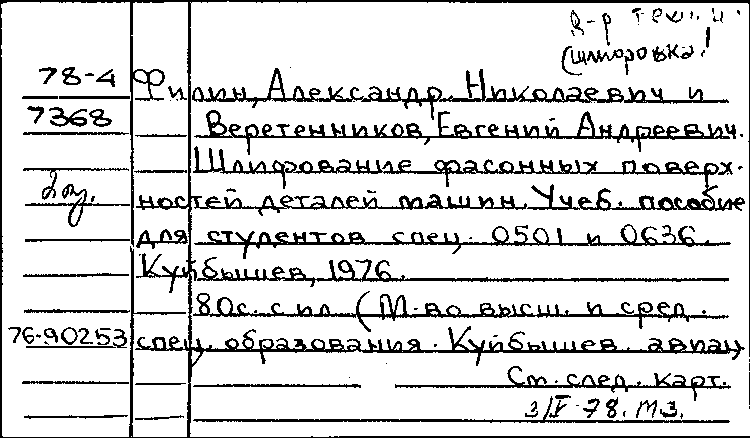 78-4 Филин, Александр Николаевич и
7368 Веретенников, Евгений Андреевич.
Шлифование фасонных поверх-
ностей деталей машин. Учеб. пособие
для студентов спец. 0501 и 0636.
Куйбышев, 1976.
80с. с ил. (М-во высш. и сред.
76-90253 спец. образования. Куйбышев. авиац
См. след. карт.
3/V-78. МЗ.